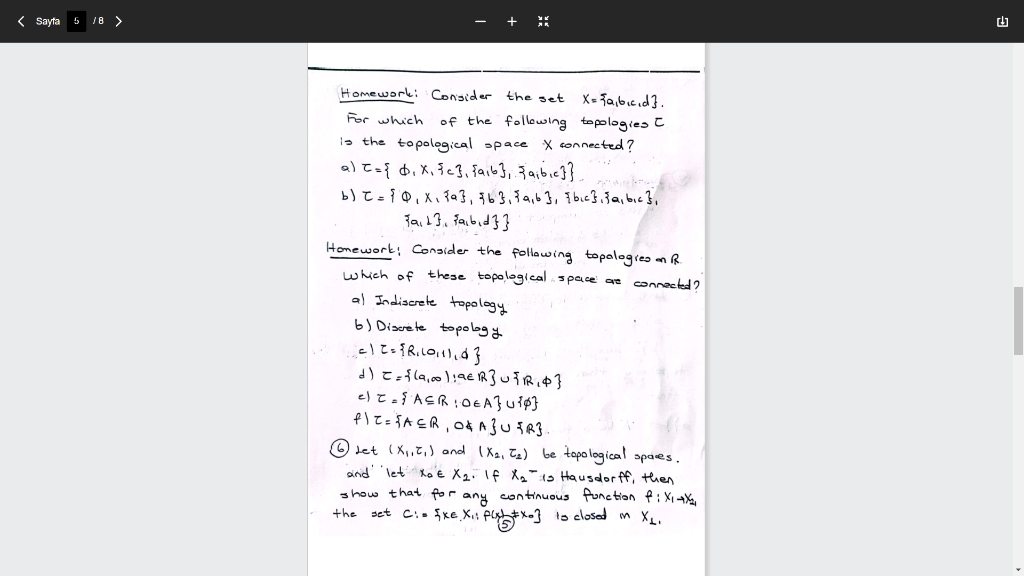 Sayfa 5 / 8
Homework: Consider the set X={a,b,c,d}.
For which of the following topologies τ
is the topological space X connected?
a) τ={ ∅, X, {c}, {a,b}, {a,b,c}}
b) τ = { ∅, X, {a}, {b}, {a,b}, {b,c}, {a,b,c},
{a,d}, {a,b,d}}
Homework: Consider the following topologies on ℝ.
Which of these topological space are connected?
a) Indiscrete topology
b) Discrete topology
c) τ={ℝ, (0,1), ∅}
d) τ={(a,∞): a∈ℝ}∪{ℝ,∅}
e) τ={A⊆ℝ : 0∈A}∪{∅}
f) τ={A⊆ℝ, 0∉A}∪{ℝ}.
⑥ Let (X₁,τ₁) and (X₂,τ₂) be topological spaces.
and let x₀∈X₂. If X₂ is Hausdorff, then
show that for any continuous function f: X₁→X₂,
the set C:= {x∈X₁: f(x)≠x₀} is closed in X₁.
⑤